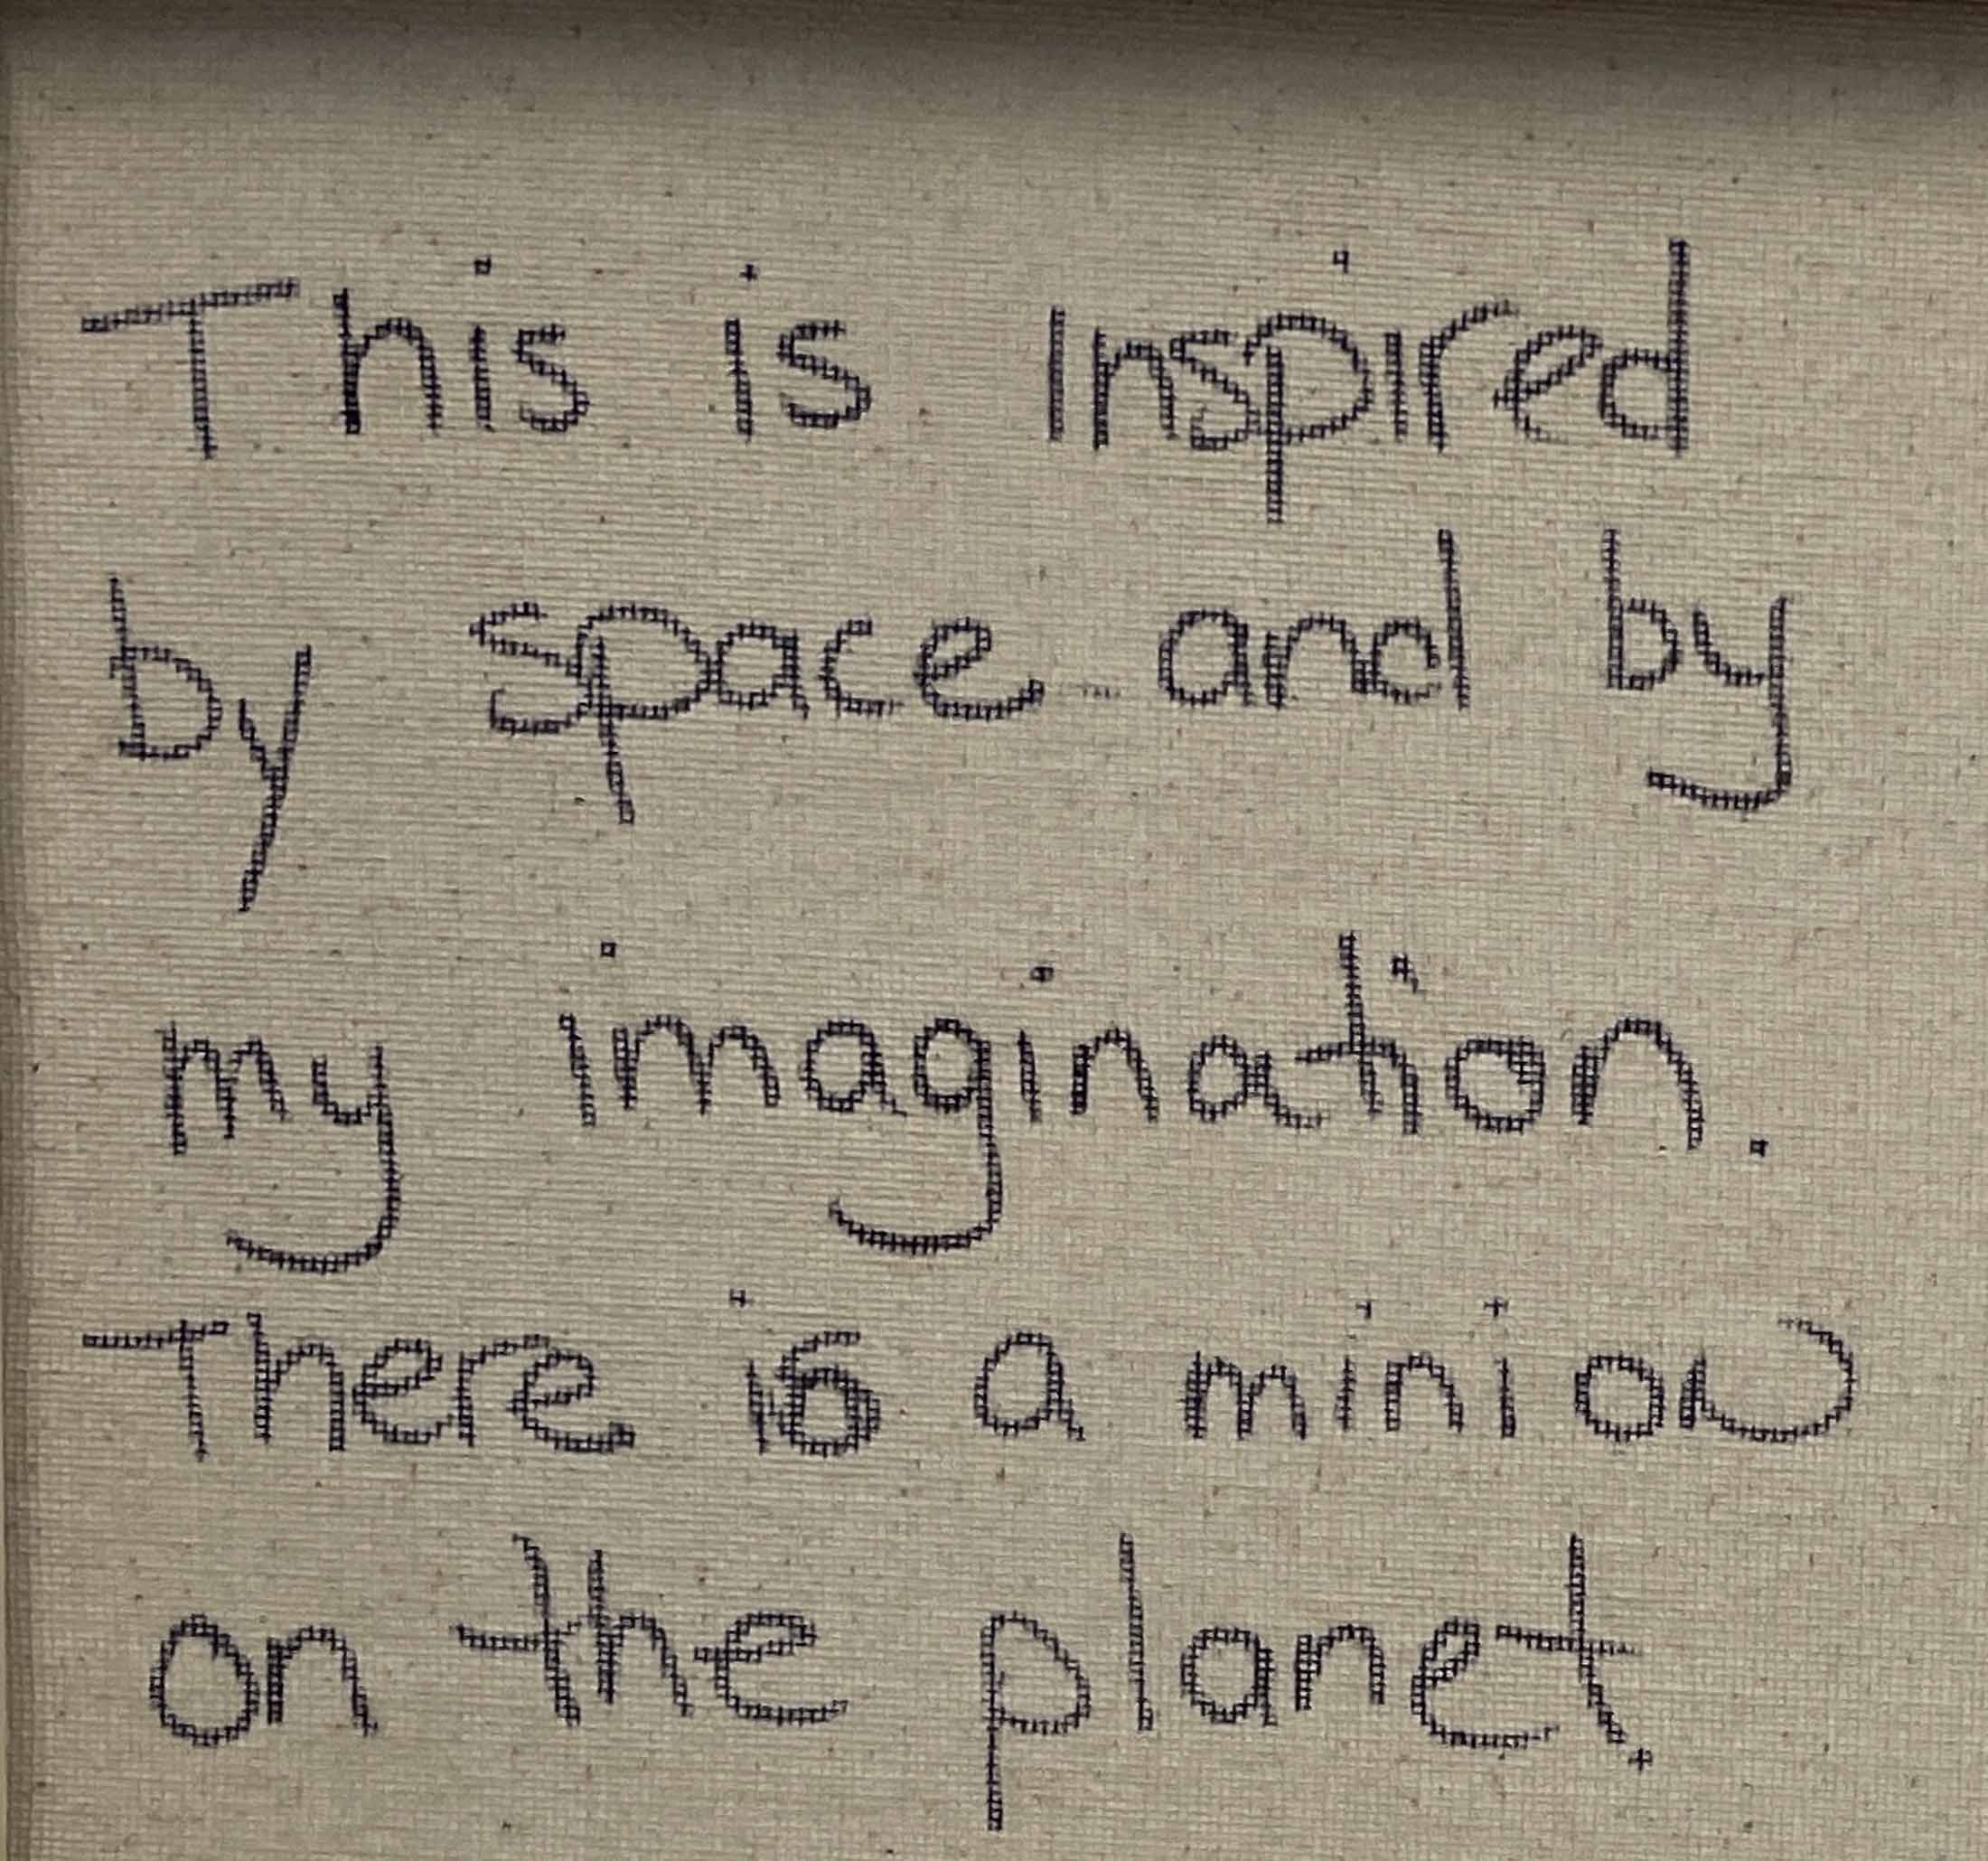 This is inspired
by space and by
my imagination.
There is a minion
on the planet.